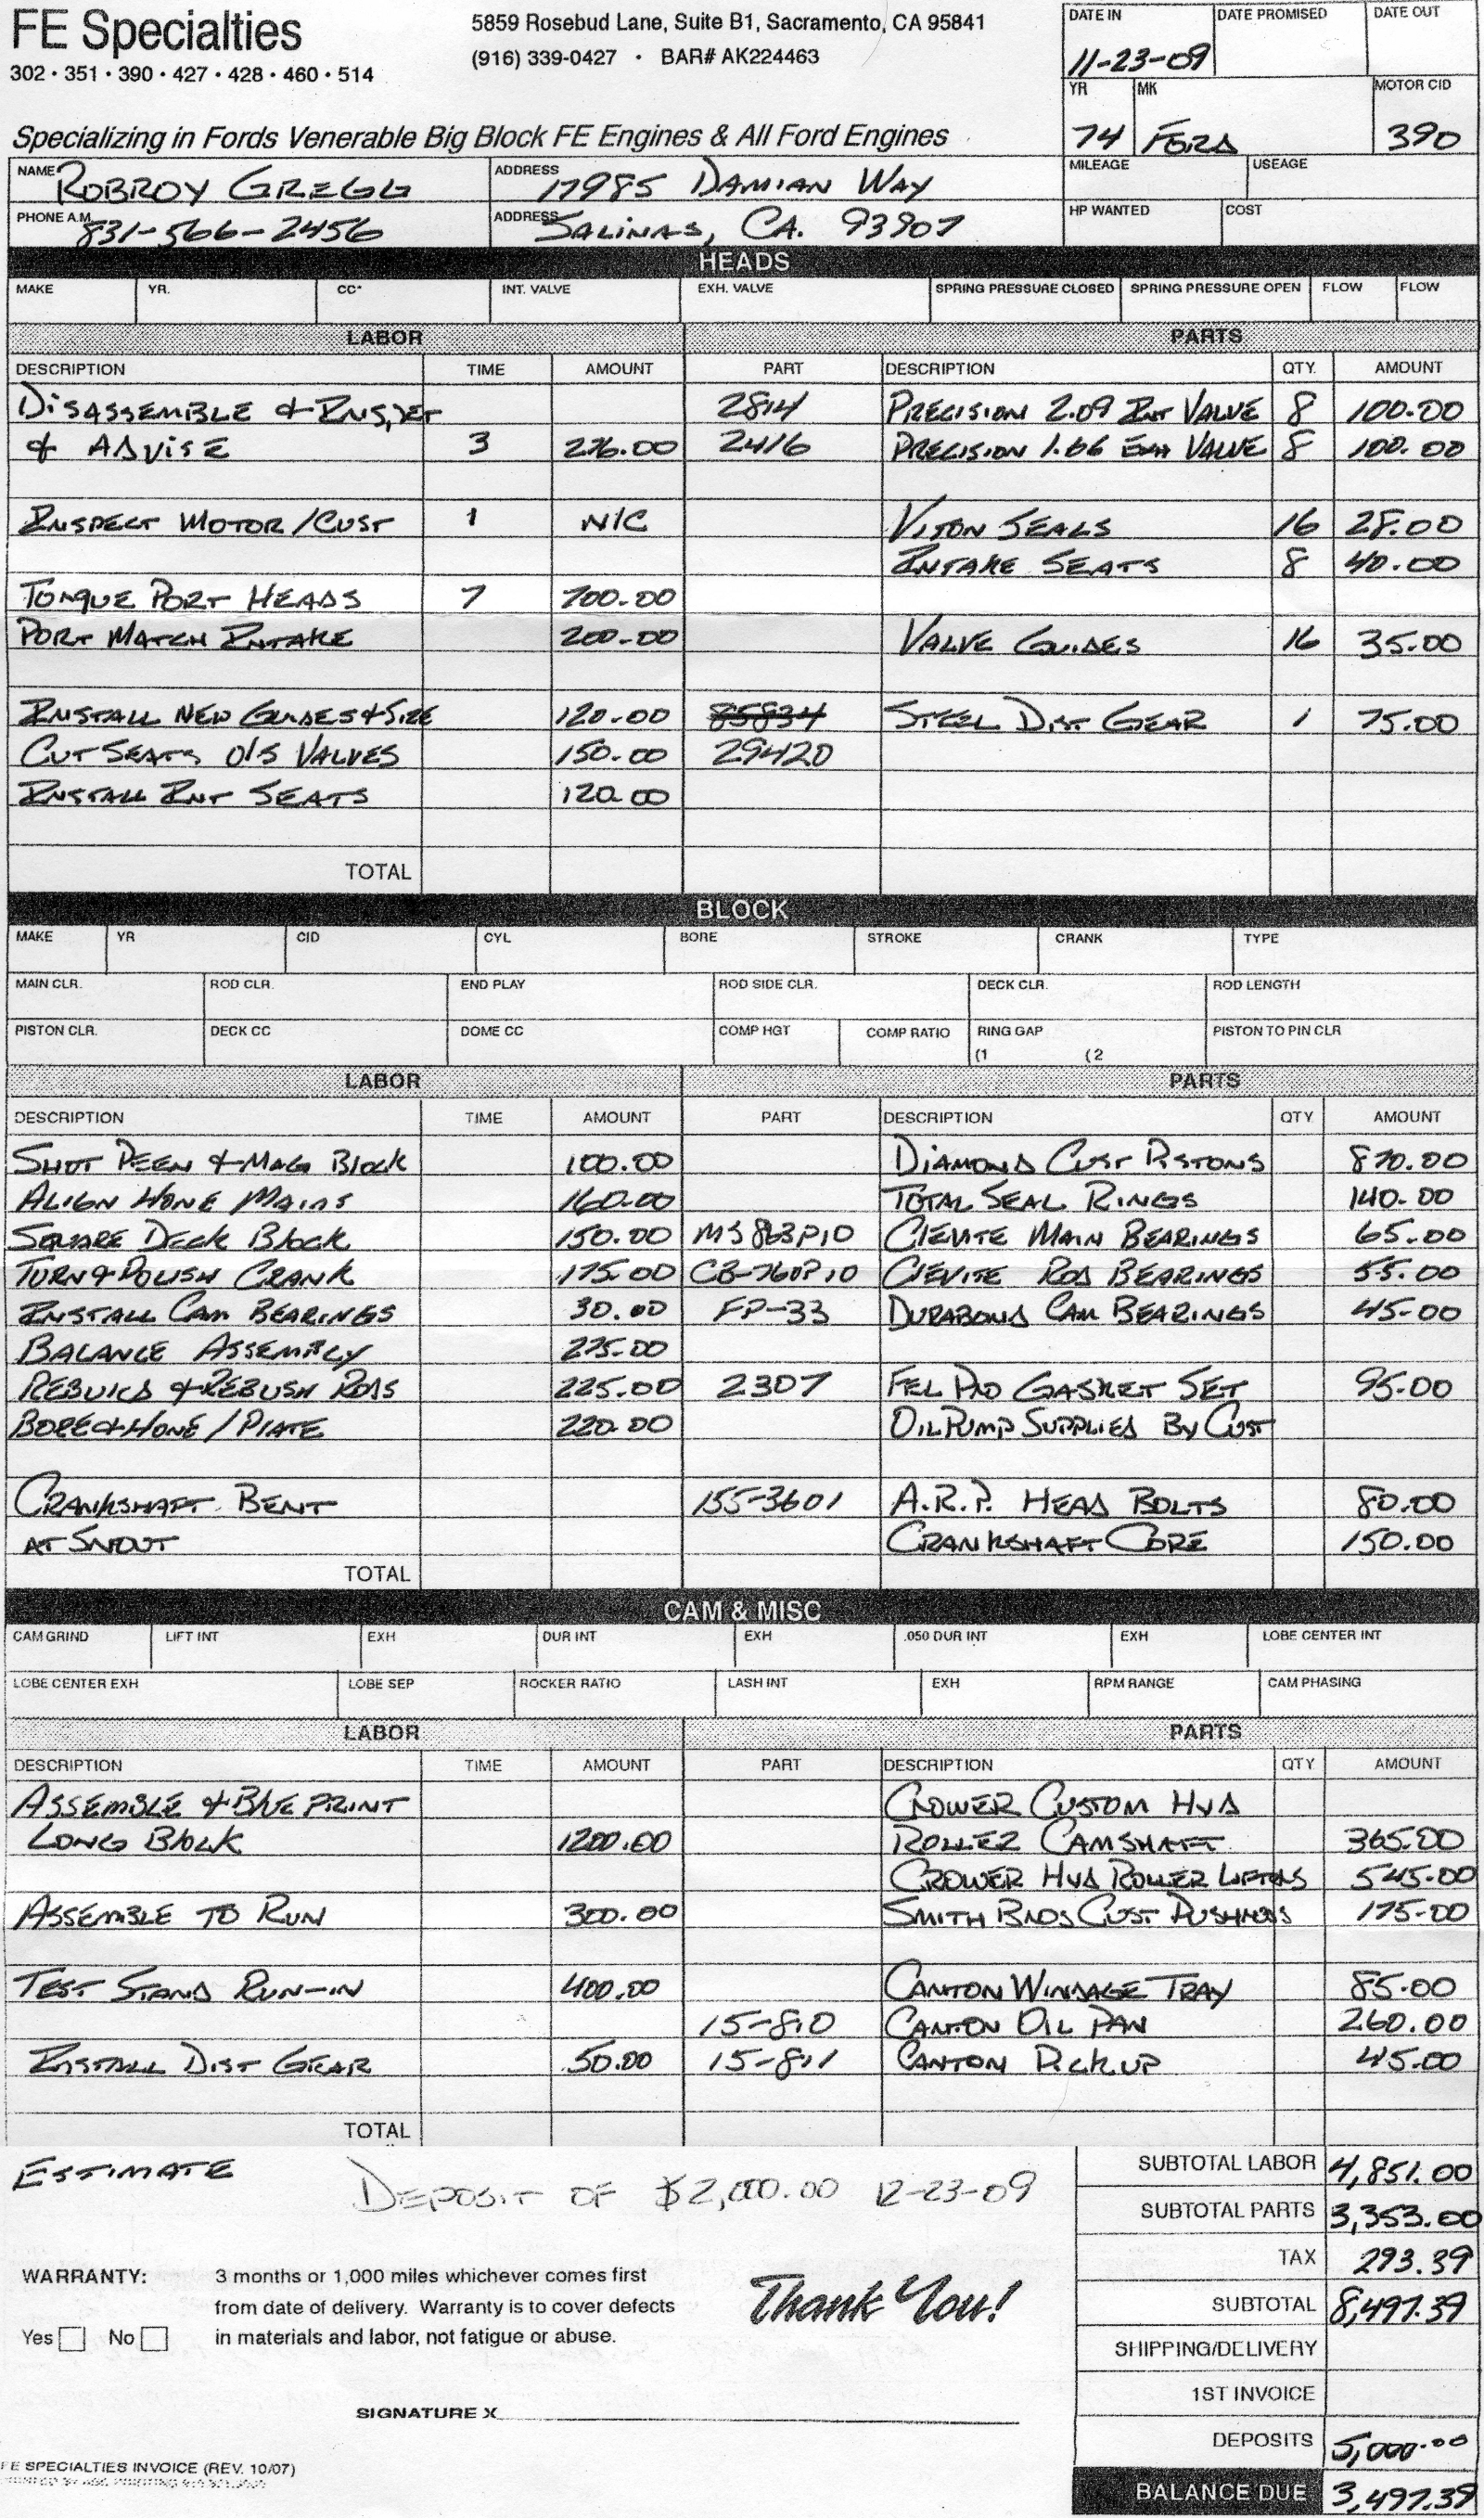 FE Specialties
302 • 351 • 390 • 427 • 428 • 460 • 514
5859 Rosebud Lane, Suite B1, Sacramento, CA 95841
(916) 339-0427 • BAR# AK224463
Specializing in Fords Venerable Big Block FE Engines & All Ford Engines
DATE IN DATE PROMISED DATE OUT
11-23-09
YR MK MOTOR CID
74 FORD 390
MILEAGE USEAGE
HP WANTED COST
NAME ROBROY GREGG ADDRESS 17985 DAMIAN WAY
PHONE A.M. 831-566-2456 ADDRESS SALINAS, CA. 93907
HEADS
MAKE YR. CC' INT. VALVE EXH. VALVE SPRING PRESSURE CLOSED SPRING PRESSURE OPEN FLOW FLOW
LABOR PARTS
DESCRIPTION TIME AMOUNT PART DESCRIPTION QTY. AMOUNT
DISASSEMBLE & 2814 PRECISION 2.09 INT VALVE 8 100.00
& ADVISE 3 2416 PRECISION 1.66 EXH VALVE 8 100.00
INSPECT MOTOR/CUST 1 N/C VITON SEALS 16 28.00
INTAKE SEATS 8 40.00
TORQUE PORT HEADS 7 700.00
PORT MATCH INTAKE 200.00 VALVE GUIDES 16 35.00
INSTALL NEW GUIDES & SIZE 120.00 85834 STEEL DIST GEAR 1 75.00
CUT SEATS O/S VALVES 150.00 29420
INSTALL INT SEATS 120.00
TOTAL
BLOCK
MAKE YR CID CYL BORE STROKE CRANK TYPE
MAIN CLR. ROD CLR. END PLAY ROD SIDE CLR. DECK CLR. ROD LENGTH
PISTON CLR. DECK CC DOME CC COMP HGT COMP RATIO RING GAP PISTON TO PIN CLR
(1 (2
LABOR PARTS
DESCRIPTION TIME AMOUNT PART DESCRIPTION QTY AMOUNT
SHOT PEEN & MAG BLOCK 100.00 DIAMOND CUST PISTONS 870.00
ALIGN HONE MAINS 160.00 TOTAL SEAL RINGS 140.00
SQUARE DECK BLOCK 150.00 MS863P10 CLEVITE MAIN BEARINGS 65.00
TURN & POLISH CRANK 175.00 CB-760P10 CLEVITE ROD BEARINGS 55.00
INSTALL CAM BEARINGS 30.00 FP-33 DURABOND CAM BEARINGS 45.00
BALANCE ASSEMBLY 225.00
REBUILD & REBUSH RODS 225.00 2307 FEL PRO GASKET SET 95.00
BORE & HONE / PLATE 220.00 OIL PUMP SUPPLIED BY CUST
CRANKSHAFT BENT 155-3601 A.R.P. HEAD BOLTS 80.00
AT SNOUT CRANKSHAFT CORE 150.00
TOTAL
CAM & MISC
CAM GRIND LIFT INT EXH DUR INT EXH .050 DUR INT EXH LOBE CENTER INT
LOBE CENTER EXH LOBE SEP ROCKER RATIO LASH INT EXH RPM RANGE CAM PHASING
LABOR PARTS
DESCRIPTION TIME AMOUNT PART DESCRIPTION QTY AMOUNT
ASSEMBLE & BLUEPRINT CROWER CUSTOM HYD
LONG BLOCK 1200.00 ROLLER CAMSHAFT 365.00
CROWER HYD ROLLER LIFTERS 545.00
ASSEMBLE TO RUN 300.00 SMITH BROS CUST PUSHRODS 175.00
TEST STAND RUN-IN 400.00 CANTON WINDAGE TRAY 85.00
15-810 CANTON OIL PAN 260.00
INSTALL DIST GEAR 50.00 15-811 CANTON PICKUP 45.00
TOTAL
ESTIMATE
DEPOSIT OF $2,000.00 12-23-09
SUBTOTAL LABOR 4,851.00
SUBTOTAL PARTS 3,353.00
TAX 293.39
SUBTOTAL 8,497.39
SHIPPING/DELIVERY
1ST INVOICE
DEPOSITS 5,000.00
BALANCE DUE 3,497.39
WARRANTY: 3 months or 1,000 miles whichever comes first
from date of delivery. Warranty is to cover defects
Yes No in materials and labor, not fatigue or abuse.
Thank You!
SIGNATURE X
FE SPECIALTIES INVOICE (REV. 10/07)